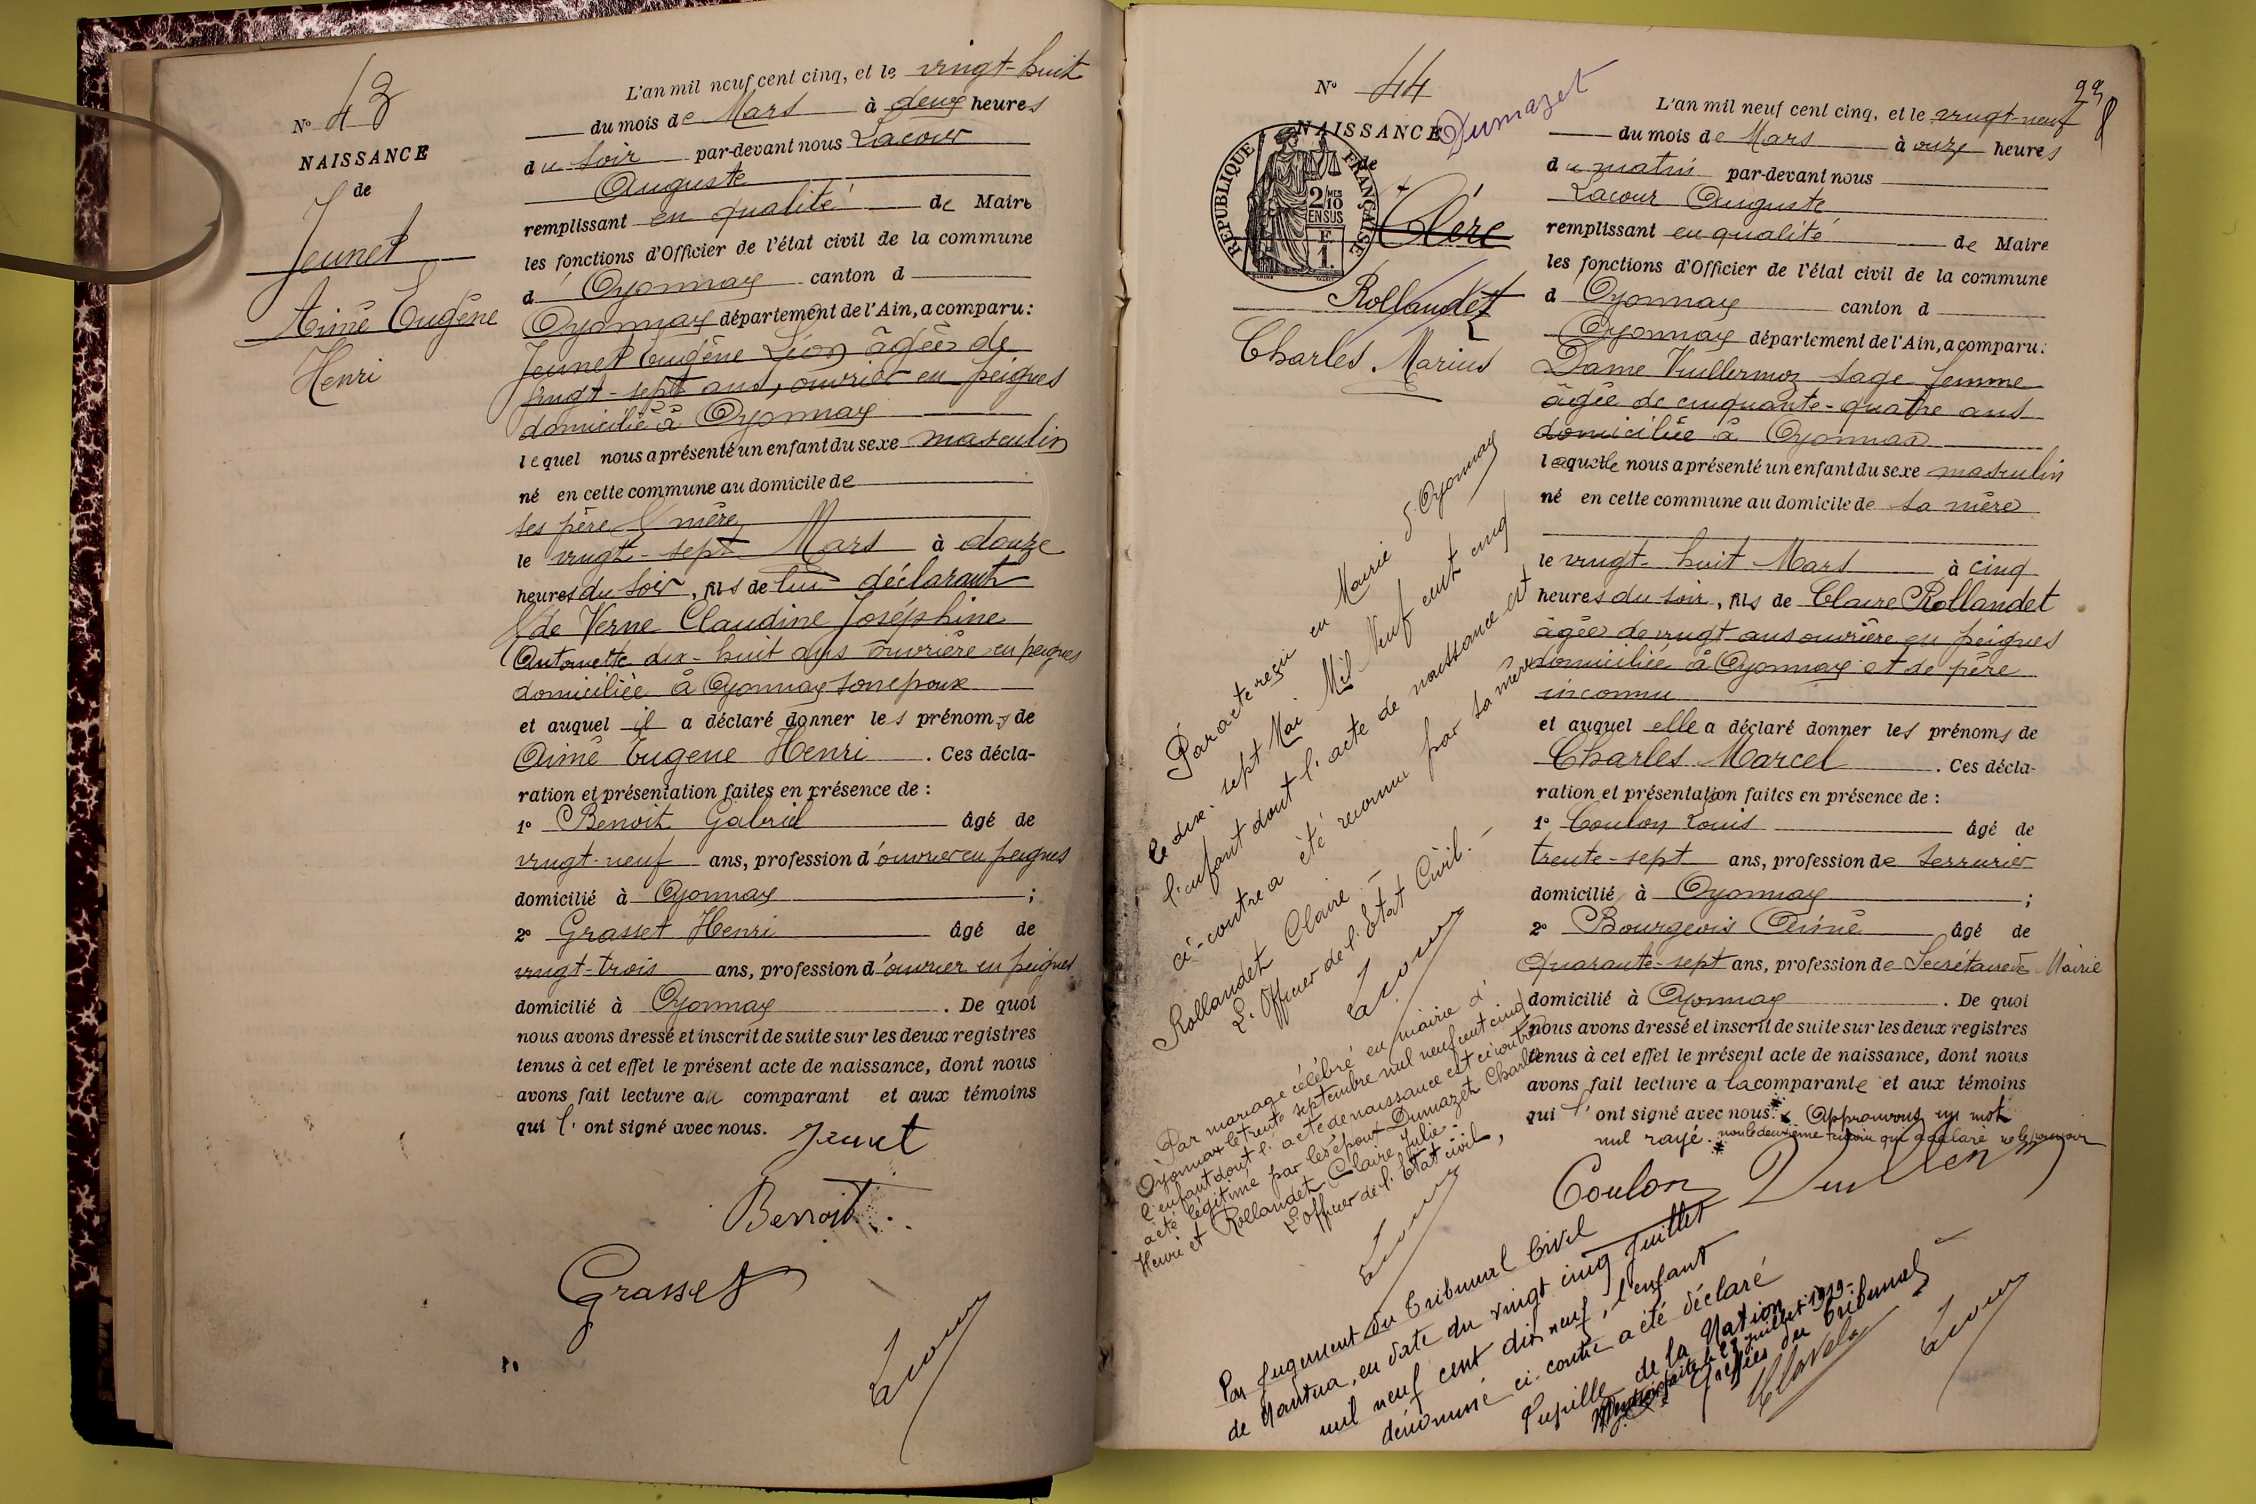 Nº 43
NAISSANCE
de
Jeunet
Aimé Eugène
Henri
L'an mil neuf cent cinq, et le vingt-huit
du mois de Mars à deux heures
du soir par-devant nous Lacour
Auguste
remplissant en qualité de Maire
les fonctions d'Officier de l'état civil de la commune
d' Oyonnax canton d
Oyonnax département de l'Ain, a comparu:
Jeunet Eugène Léon âgé de
vingt-sept ans, ouvrier en peignes
domicilié à Oyonnax
lequel nous a présenté un enfant du sexe masculin
né en cette commune au domicile de
ses père & mère
le vingt-sept Mars à douze
heures du soir, fils de lui déclarant
& de Verne Claudine Joséphine
Antoinette dix-huit ans ouvrière en peignes
domiciliée à Oyonnax son épouse
et auquel il a déclaré donner les prénoms de
Aimé Eugene Henri . Ces décla-
ration et présentation faites en présence de :
1º Benoit Gabriel âgé de
vingt-neuf ans, profession d'ouvrier en peignes
domicilié à Oyonnax ;
2º Grasset Henri âgé de
vingt-trois ans, profession d'ouvrier en peignes
domicilié à Oyonnax . De quoi
nous avons dressé et inscrit de suite sur les deux registres
tenus à cet effet le présent acte de naissance, dont nous
avons fait lecture au comparant et aux témoins
qui l' ont signé avec nous.
Jeunet
Benoit
Grasset
Lacour
23
Nº 44
NAISSANCE
de
Dumazet
REPUBLIQUE FRANÇAISE
2/10 MES
EN SUS
F.
1.
Clère
Rollandet
Charles Marius
L'an mil neuf cent cinq, et le vingt-neuf
du mois de Mars à onze heures
du matin par-devant nous
Lacour Auguste
remplissant en qualité de Maire
les fonctions d'Officier de l'état civil de la commune
d Oyonnax canton d
Oyonnax département de l'Ain, a comparu:
Dame Vuillermoz sage femme
âgée de cinquante-quatre ans
domiciliée à Oyonnax
laquelle nous a présenté un enfant du sexe masculin
né en cette commune au domicile de sa mère
le vingt-huit Mars à cinq
heures du soir, fils de Claire Rollandet
âgée de vingt ans ouvrière en peignes
domiciliée à Oyonnax et de père
inconnu
et auquel elle a déclaré donner les prénoms de
Charles Marcel . Ces décla-
ration et présentation faites en présence de :
1º Coulon Louis âgé de
trente-sept ans, profession de serrurier
domicilié à Oyonnax ;
2º Bourgeois Aimé âgé de
quarante-sept ans, profession de Secrétaire de Mairie
domicilié à Oyonnax . De quoi
nous avons dressé et inscrit de suite sur les deux registres
tenus à cet effet le présent acte de naissance, dont nous
avons fait lecture a la comparante et aux témoins
qui l' ont signé avec nous. Approuvons un mot
nul rayé.
Coulon
Lacour
Par acte reçu en Mairie d'Oyonnax
le dix-sept Mai Mil Neuf cent cinq
l'enfant dont l'acte de naissance est
ci-contre a été reconnu par sa mère
Rollandet Claire.-
L'Officier de l'Etat Civil.-
Lacour
Par mariage célébré en mairie d'
Oyonnax le trente septembre mil neuf cent cinq
l'enfant dont l'acte de naissance est ci-contre
a été légitimé par les époux Dumazet Charles
Henri et Rollandet Claire Julie.-
L'officier de l'Etat civil,
Lacour
Par jugement du Tribunal Civil
de Nantua, en date du vingt cinq juillet
mil neuf cent dix neuf, l'enfant
dénommé ci-contre a été déclaré
Pupille de la Nation
Mention faite le 29 juillet 1919.-
Greffier du Tribunal